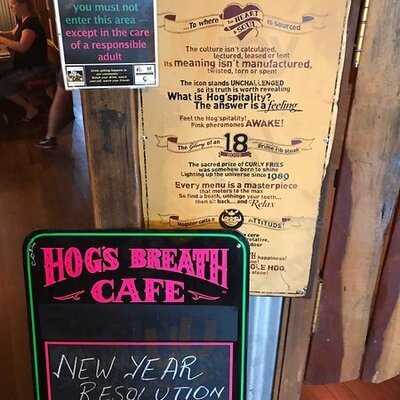 you must not
enter this area —
except in the care
of a responsible
adult
...To where the HEART
& SOUL is sourced
The culture isn't calculated,
lectured, leased or lent
Its meaning isn't manufactured,
twisted, torn or spent
The icon stands UNCHALLENGED
so its truth is worth revealing
What is Hog'spitality?
The answer is a feeling
Feel the Hog'spitality!
Pink pheromones AWAKE!
The Glory of an 18 hour prime rib steak
The sacred prize of CURLY FRIES
was somehow born to shine
Lighting up the universe since 1989
Every menu is a masterpiece
that motors to the max
So find a beach, unhinge your teeth...
then sit back... and Relax
ATTITUDE!
core
door
happiness!
HOG
HOG'S BREATH
CAFE
NEW YEAR
RESOLUTION